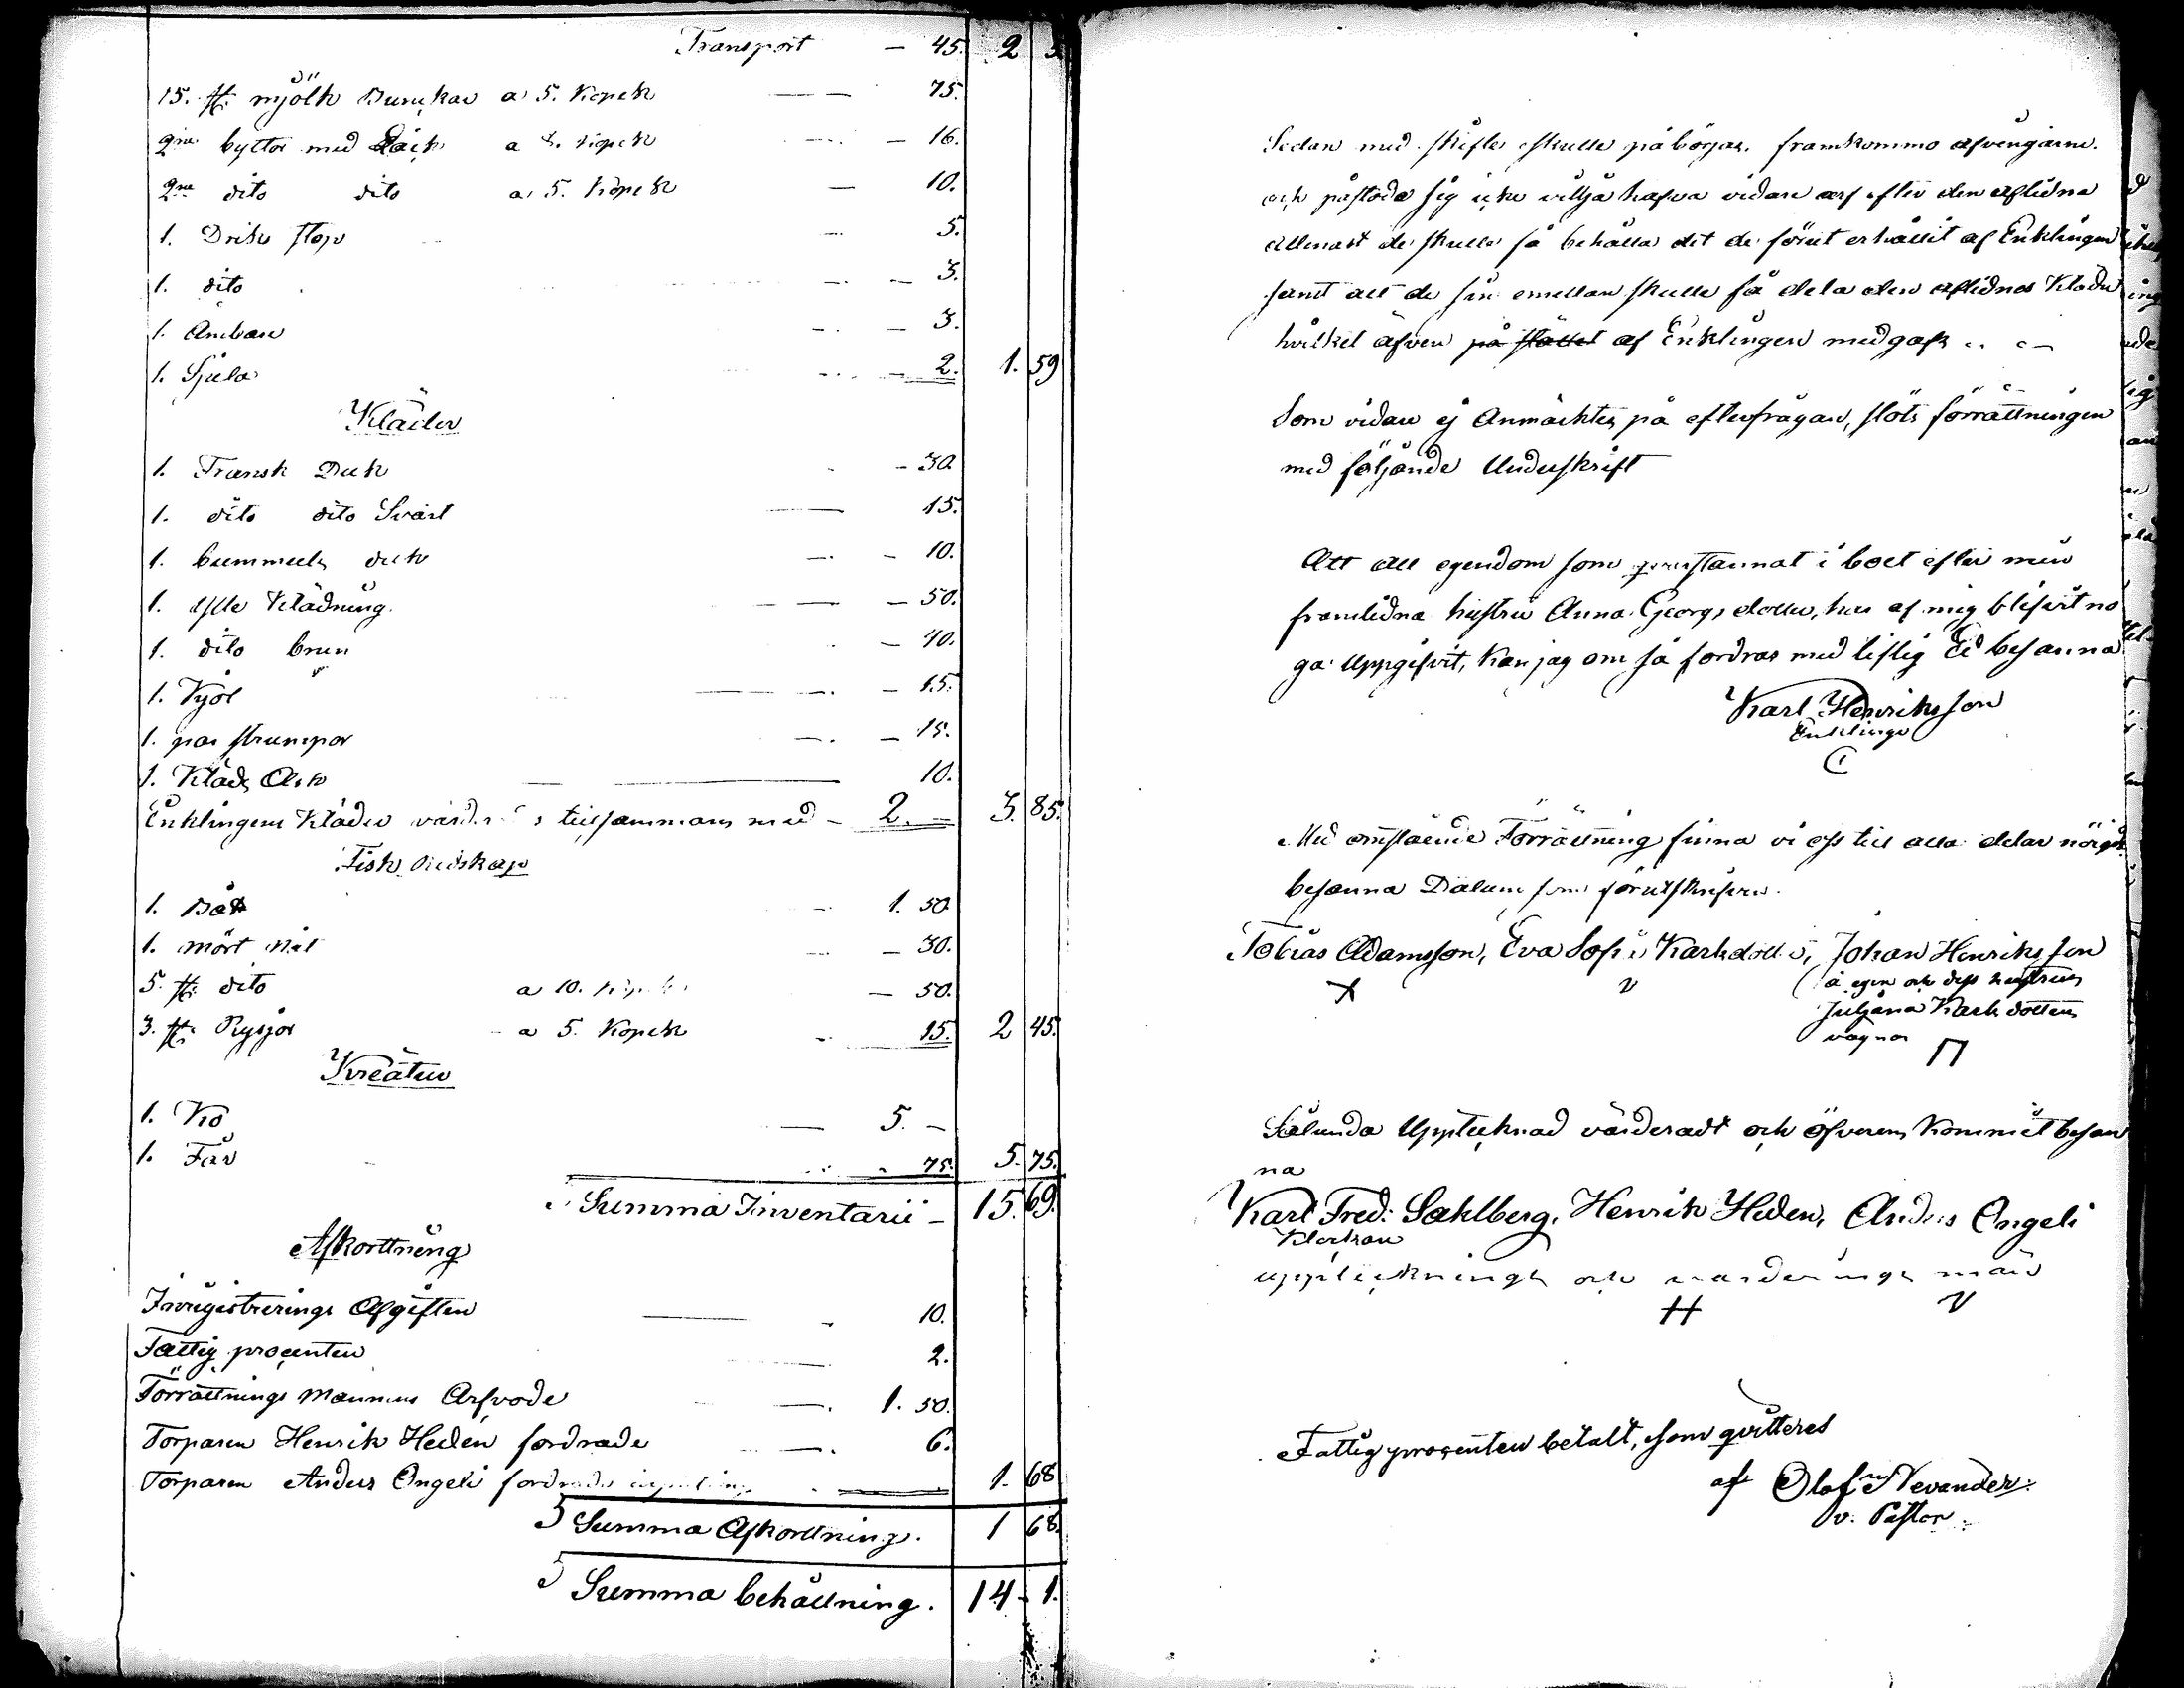 Transport — 45. 2
15. st: mjölk Bunkar a 5. Kopek — — 75.
2ne byttor med Låck a 8. kopek — 16.
2ne dito dito a 5. Kopek — 10.
1. Drik stop — 5.
1. dito — — 3.
1. Ämbare — — 3.
1. Sjula — 2. 1. 59
Kläder
1. Fransk Duk — 30.
1. dito dito Svart — 15.
1. bummuls duk — — 10.
1. Ylle Klädning. — — 50.
1. dito brun — 40.
1. Kjol — — 15.
1. par strumpor — — 15.
1. Kläds Ask — 10.
Enklingens Kläder tillsammans med — 2. — 3. 85.
Fisk Redskap
1. Båt — 1. 50.
1. mört nät — 30.
5. st: dito a 10. — 50.
3. st: Rysjor a 5. Kopek 15. 2 45.
Kreatur
1. Ko — 5. —
1. Får 75. 5. 75.
Summa Inventarii — 15. 69.
Afkorttning
Inregistrerings Afgiften — 10.
Fattig procenten — 2.
Förrättnings Mannens Arfvode — 1. 50.
Torparen Henrik Hedén fordrade — 6.
Torparen Anders Ongeli 1. 68
Summa Afkorttning. 1 68.
Summa behållning. 14 - 1.
Sedan med skifte skulle påbörjas, framkommo arfvingarne.
och påstodo sig icke villja hafva vidare arf efter den aflidna
allenast de skulle få behålla det de förut erhållit af Enklingen
samt att de sin emellan skulle få dela den aflidnas Kläder
hvilket äfven på stället af Enklingen medgafs
Som vidare ej Anmärktes på efterfrågan, slöts förrättningen
med följande Underskrift
Att all egendom som qvarstannat i boet efter min
framlidna hustru Anna Georgs dotter, har af mig blifvit no
ga Uppgifvit, Kan jag om så fordras med liflig Ed besanna
Karl Henriksson
Enklinge
Med omstående Förrättning finna vi oss till alla delar nöjde
besanna Datum som förutskrifvit.
Tobias Adamsson, Eva Sofia Karlsdotter, Johan Henriksson
å egen och dess hustrus
Juljana Karlsdotters
vägnar
Sålunda Upptecknad värderadt och öfverens Kommit besan
na
Karl Fred: Sahlberg, Henrik Heden, Anders Ongeli
Klockare
upptecknings och värderings män
Fattigprocenten betalt, som qvitteres
af Olof Nevander.
v. Pastor.